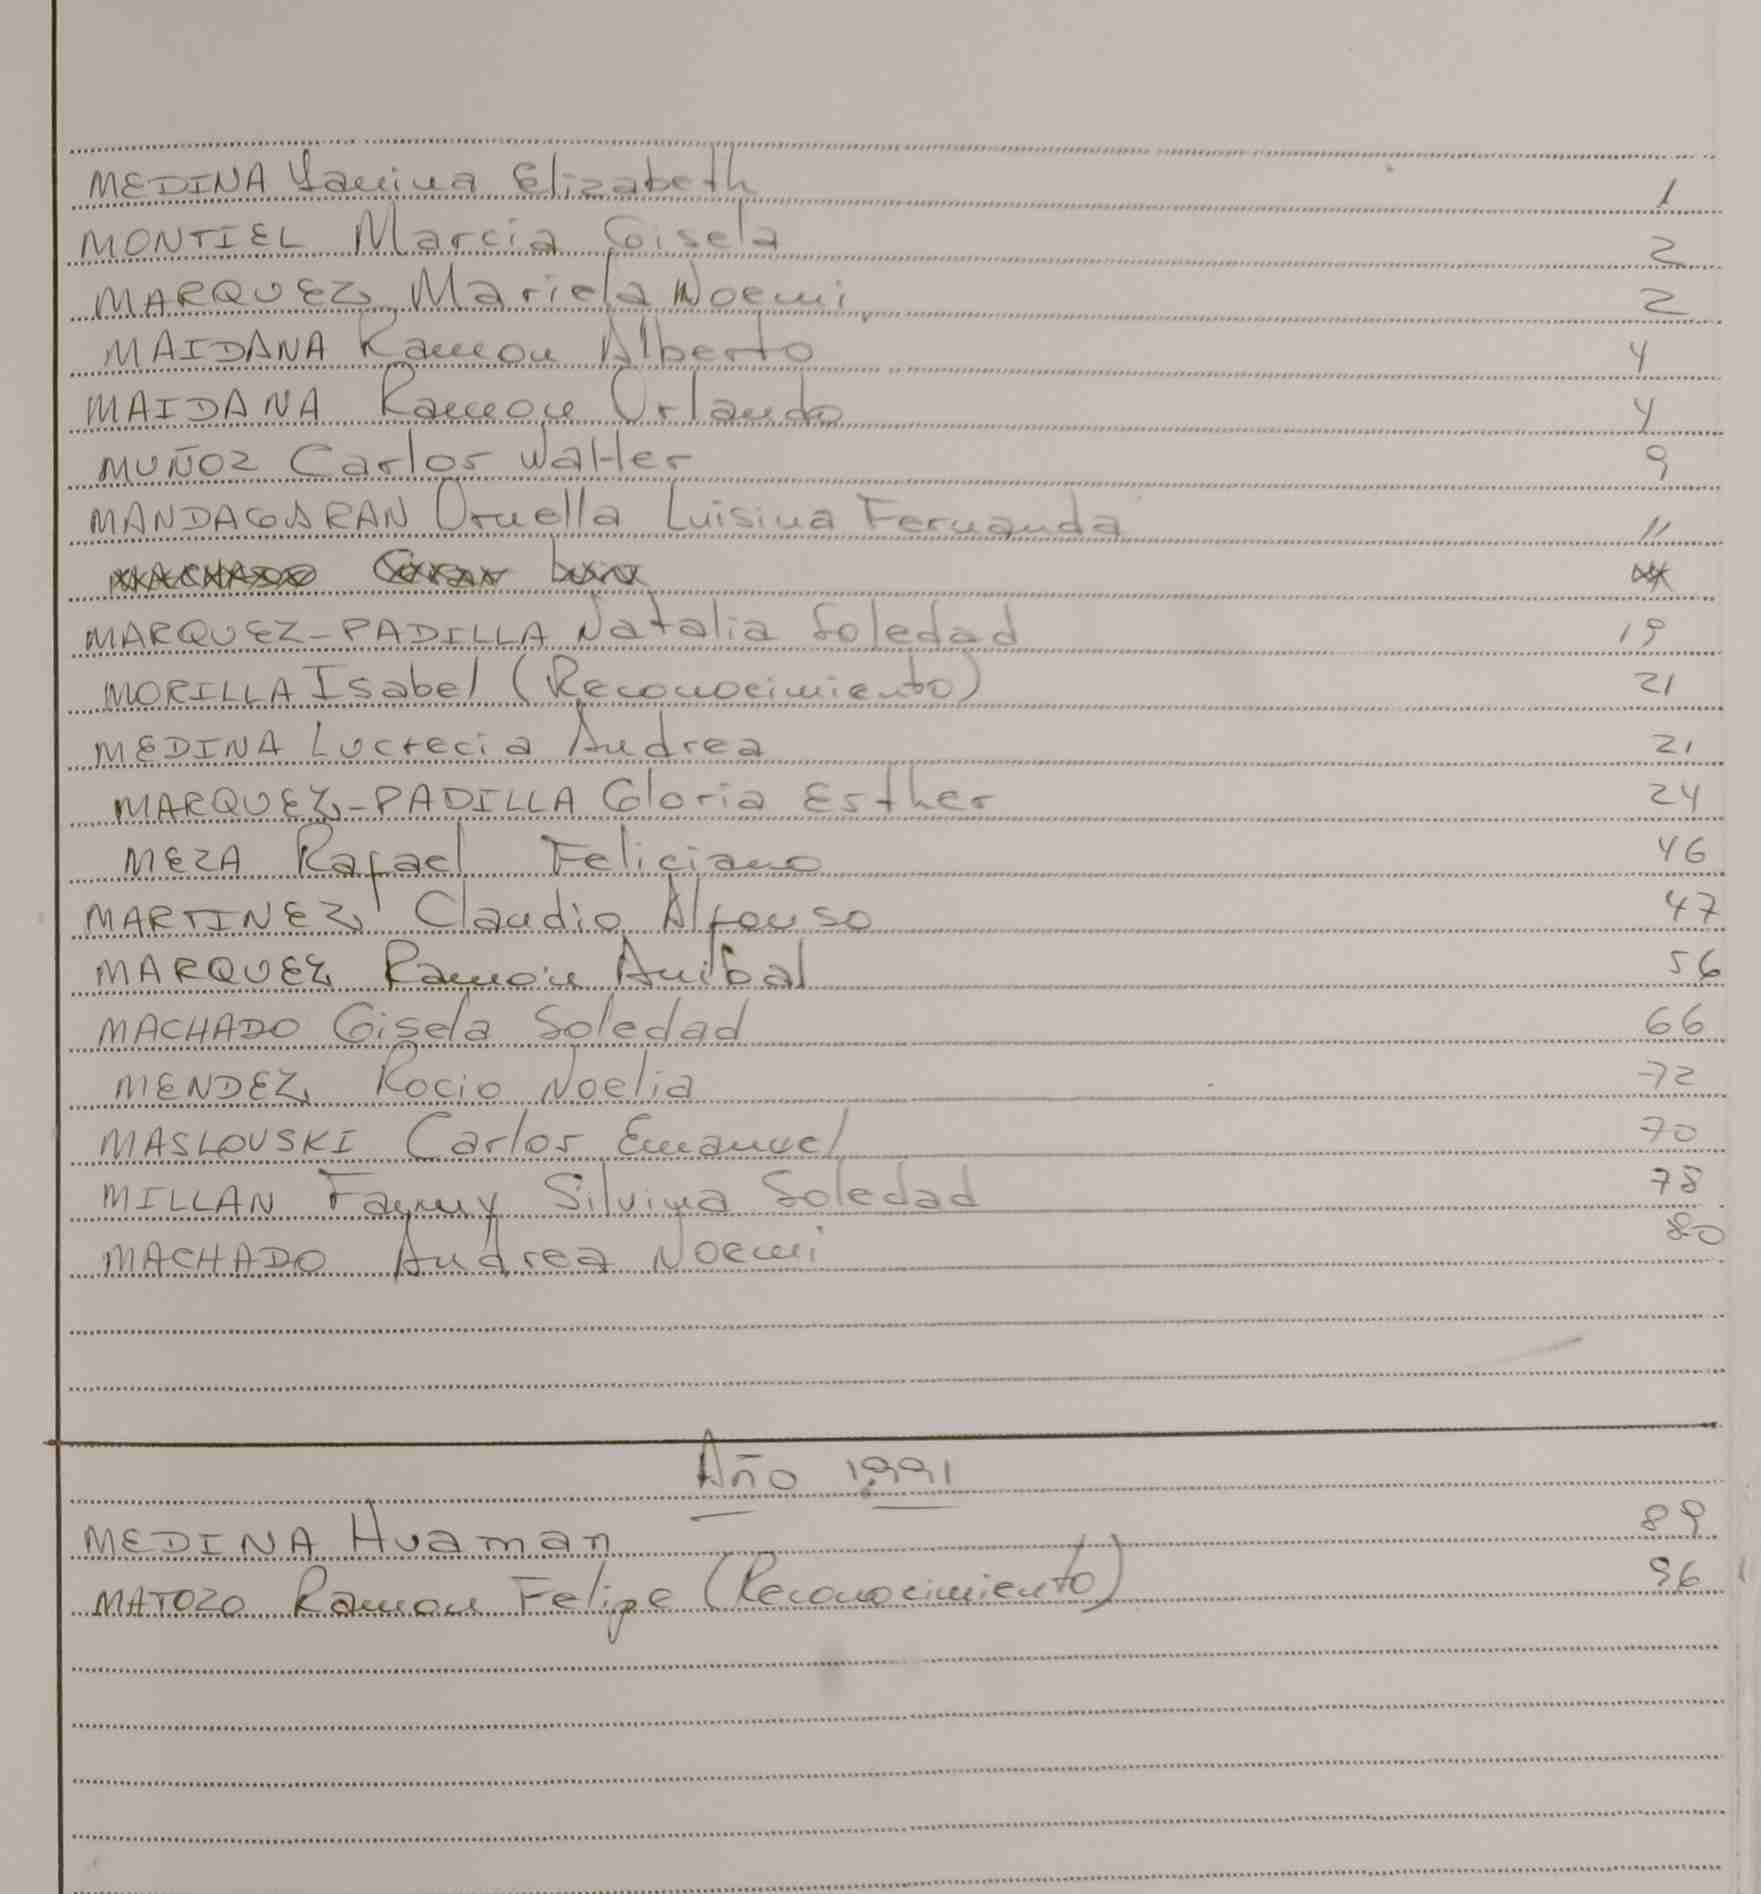 MEDINA Yanina Elizabeth 1
MONTIEL Marcia Gisela 2
MARQUEZ Mariela Noemi 2
MAIDANA Ramon Alberto 4
MAIDANA Ramon Orlando 4
MUÑOZ Carlos Walter 9
MANDAGARAN Ornella Luisina Fernanda 11
MACHADO
MARQUEZ-PADILLA Natalia Soledad 19
MORILLA Isabel (Reconocimiento) 21
MEDINA Lucrecia Andrea 21
MARQUEZ-PADILLA Gloria Esther 24
MEZA Rafael Feliciano 46
MARTINEZ Claudio Alfonso 47
MARQUEZ Ramon Anibal 56
MACHADO Gisela Soledad 66
MENDEZ Rocio Noelia 72
MASLOVSKI Carlos Emanuel 70
MILLAN Fanny Silvina Soledad 78
MACHADO Andrea Noemi 80
Año 1991
MEDINA Huaman 89
MATOZO Ramon Felipe (Reconocimiento) 96